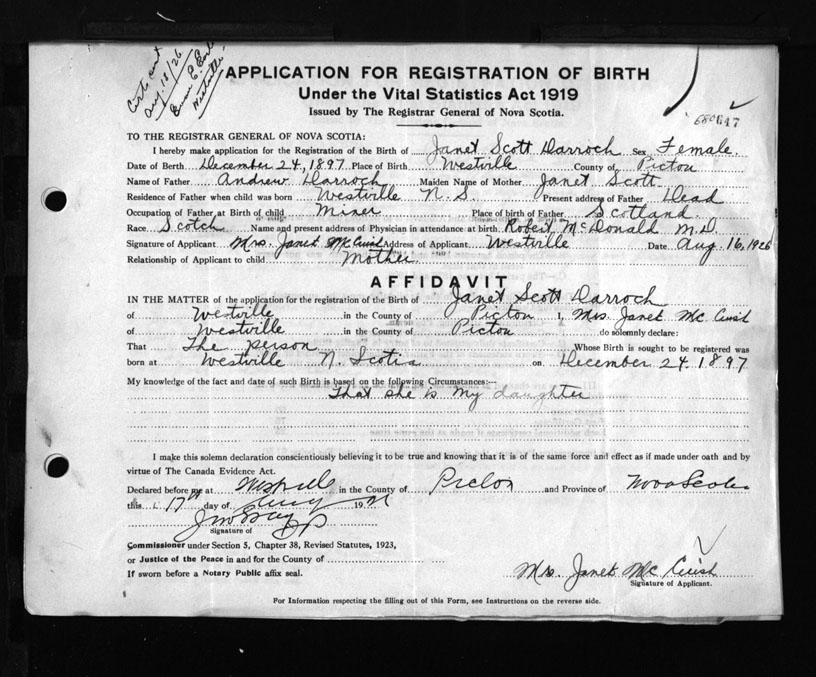 Cert. sent
Aug. 18/26
Westville
APPLICATION FOR REGISTRATION OF BIRTH
Under the Vital Statistics Act 1919
Issued by The Registrar General of Nova Scotia.
647
TO THE REGISTRAR GENERAL OF NOVA SCOTIA:
I hereby make application for the Registration of the Birth of Janet Scott Darroch Sex Female.
Date of Birth December 24, 1897 Place of Birth Westville County of Pictou
Name of Father Andrew Darroch Maiden Name of Mother Janet Scott
Residence of Father when child was born Westville N. S. Present address of Father Dead
Occupation of Father at Birth of child Miner Place of birth of Father Scotland.
Race Scotch Name and present address of Physician in attendance at birth Robert McDonald M.D.
Signature of Applicant Mrs. Janet McCuish Address of Applicant Westville Date Aug. 16, 1926
Relationship of Applicant to child Mother
AFFIDAVIT
IN THE MATTER of the application for the registration of the Birth of Janet Scott Darroch
of Westville in the County of Pictou I, Mrs. Janet McCuish
of Westville in the County of Pictou do solemnly declare:
That The person Whose Birth is sought to be registered was
born at Westville N. Scotia on December 24, 1897
My knowledge of the fact and date of such Birth is based on the following Circumstances:—
That she is my daughter
I make this solemn declaration conscientiously believing it to be true and knowing that it is of the same force and effect as if made under oath and by
virtue of The Canada Evidence Act.
Declared before me at Westville in the County of Pictou and Province of Nova Scotia
this 17th day of Aug 19
Signature of
Commissioner under Section 5, Chapter 38, Revised Statutes, 1923,
or Justice of the Peace in and for the County of
If sworn before a Notary Public affix seal.
Mrs. Janet McCuish
Signature of Applicant.
For Information respecting the filling out of this Form, see Instructions on the reverse side.